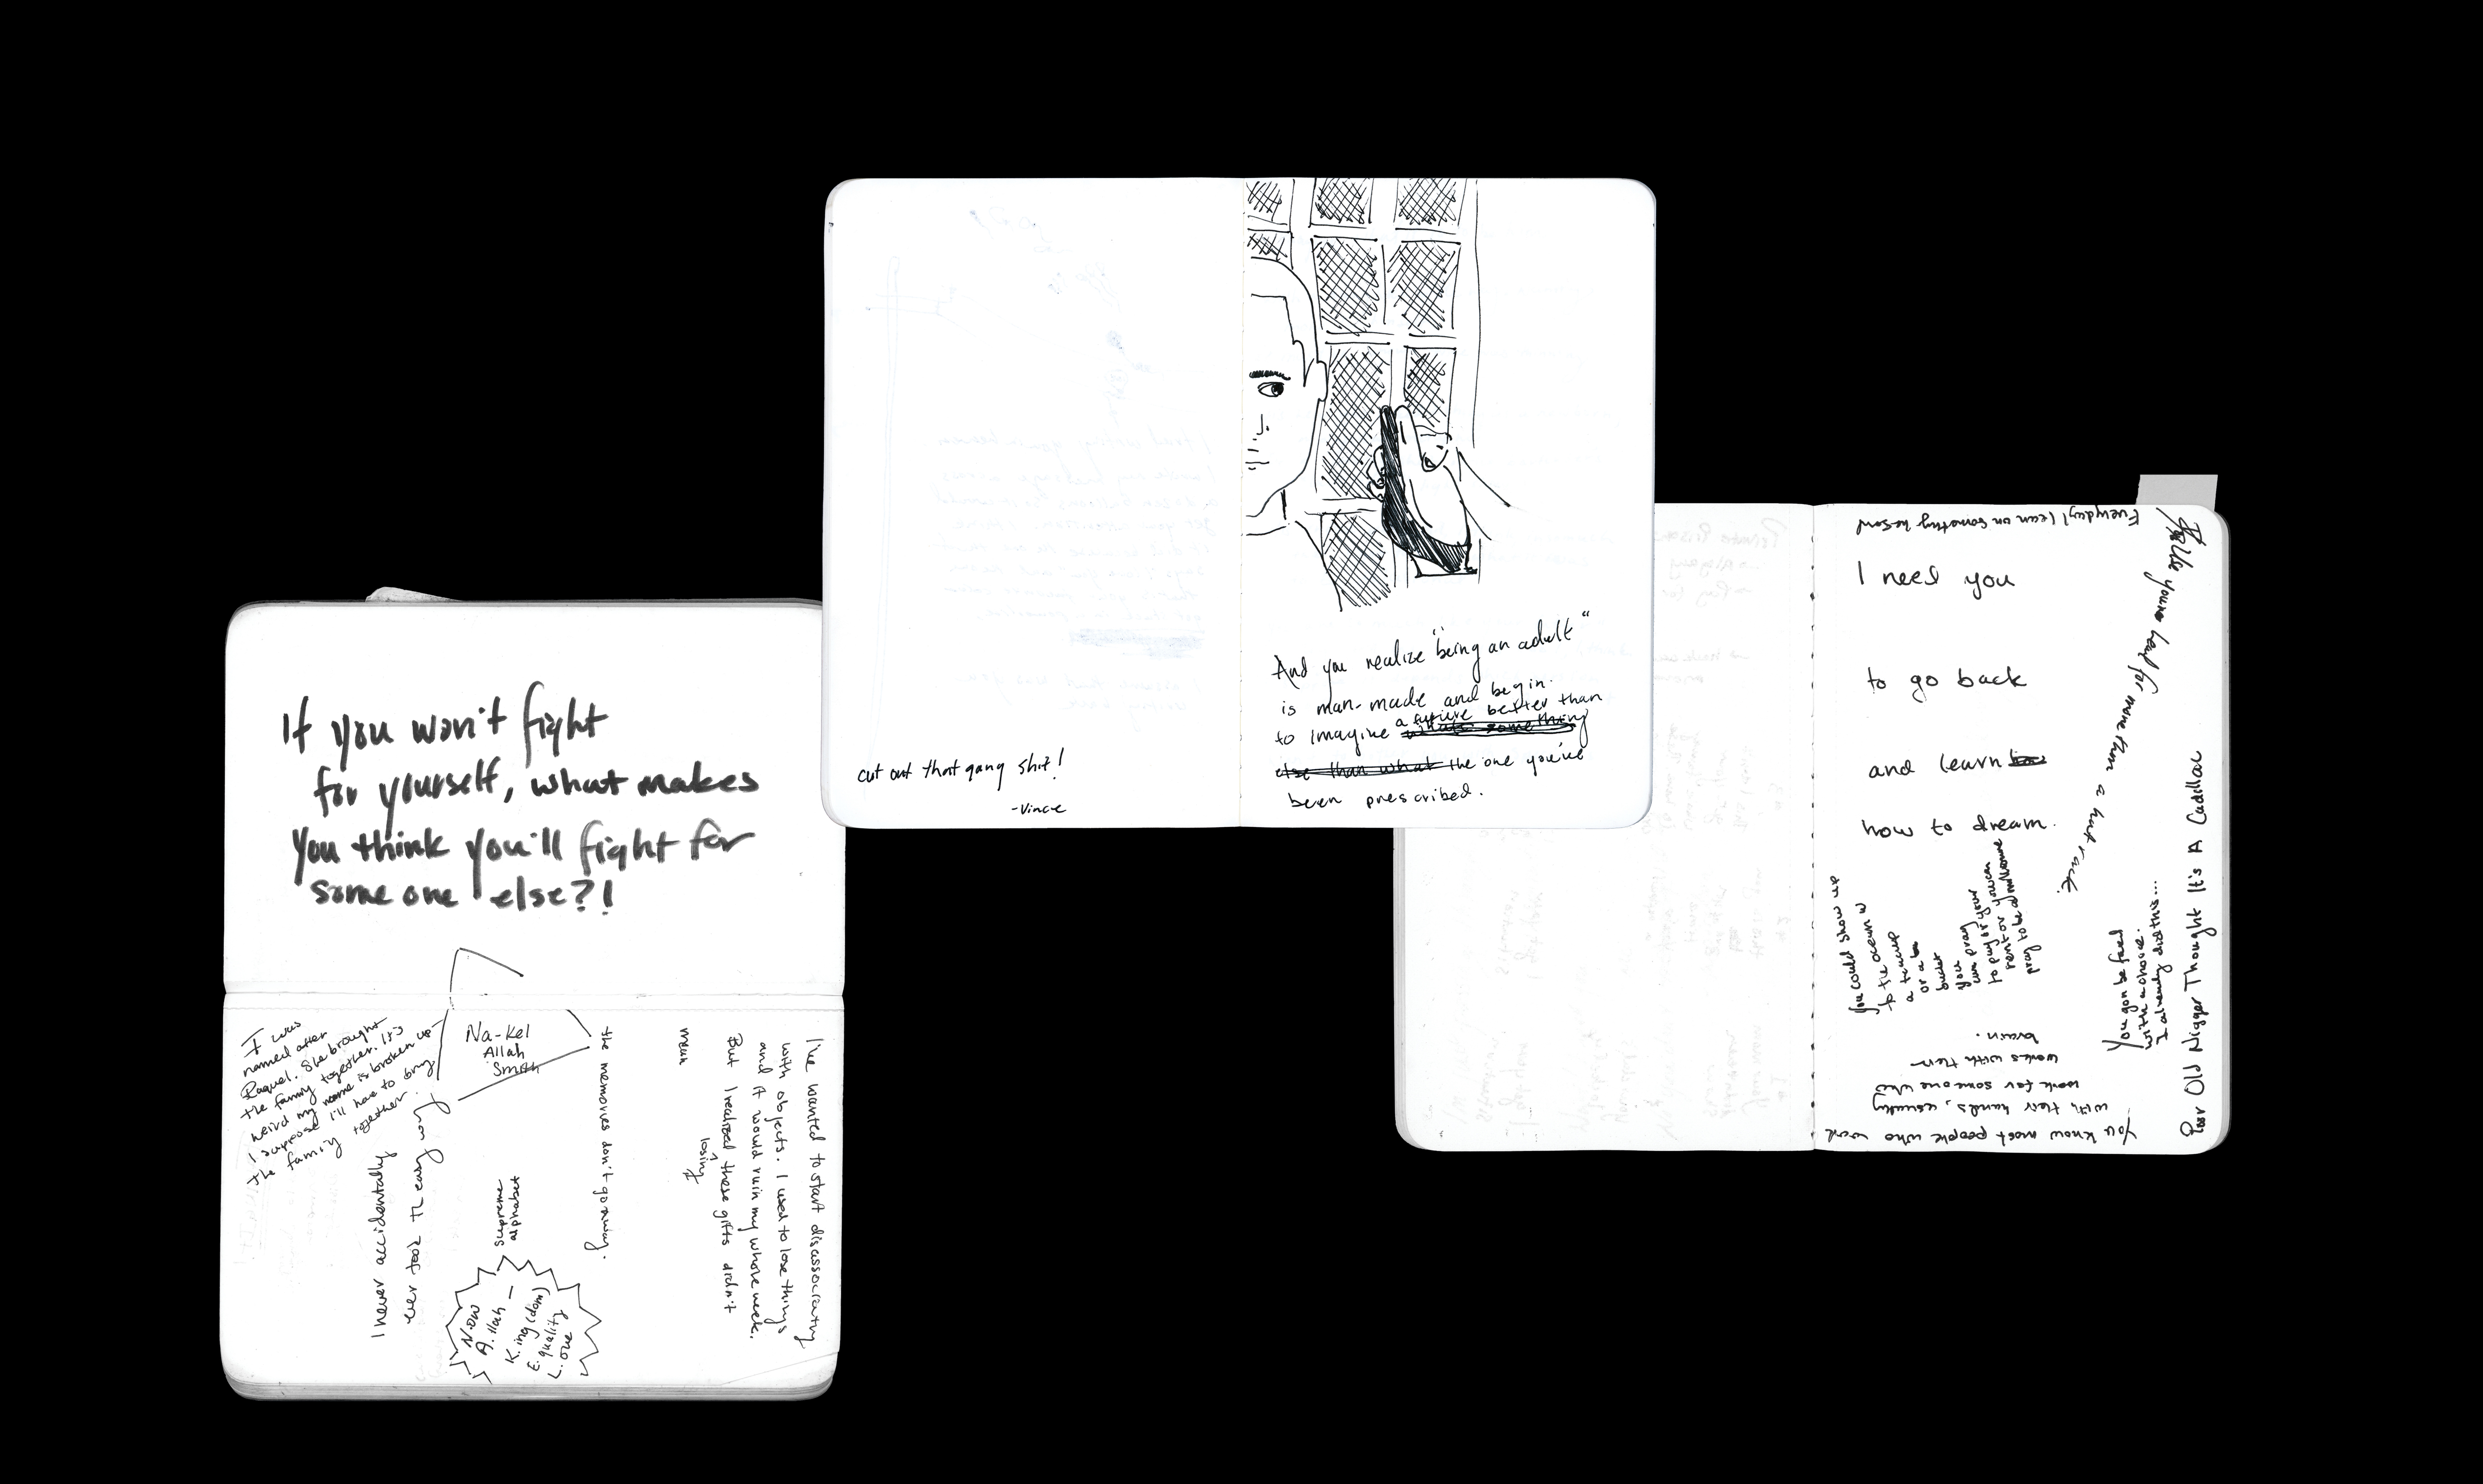 If you won't fight
for yourself, what makes
you think you'll fight for
some one else?!
I was
named after
Raquel. She brought
the family together. It's
weird my name is broken up-
I suppose I'll have to bring
the family together.
Na-Kel
Allah
Smith
I never accidentally
ever took the easy way
supreme
alphabet
N.ow
A.llah -
K.ing(dom)
E.quality
L.ove
the memories don't go away.
I've wanted to start disassociating
with objects. I used to lose things
and it would ruin my whole week.
But I realized losing these gifts didn't
mean
cut out that gang shit!
-Vince
And you realize "being an adult"
is man-made and begin
to imagine a future better than
the one you've
been prescribed.
Everyday I lean on something he said
I need you
to go back
and learn
how to dream.
You could show up
to the ocean w
a teacup
or a
bucket
you
can pray
to pay your
rent or you can
pray to be a millionaire
Use your head for more than a hat rack.
You gon be faced
with a choice.
I already did this...
Poor Old Nigger Thought It's A Cadillac
You know most people who work
with their hands, usually
work for someone who
works with their
brain.